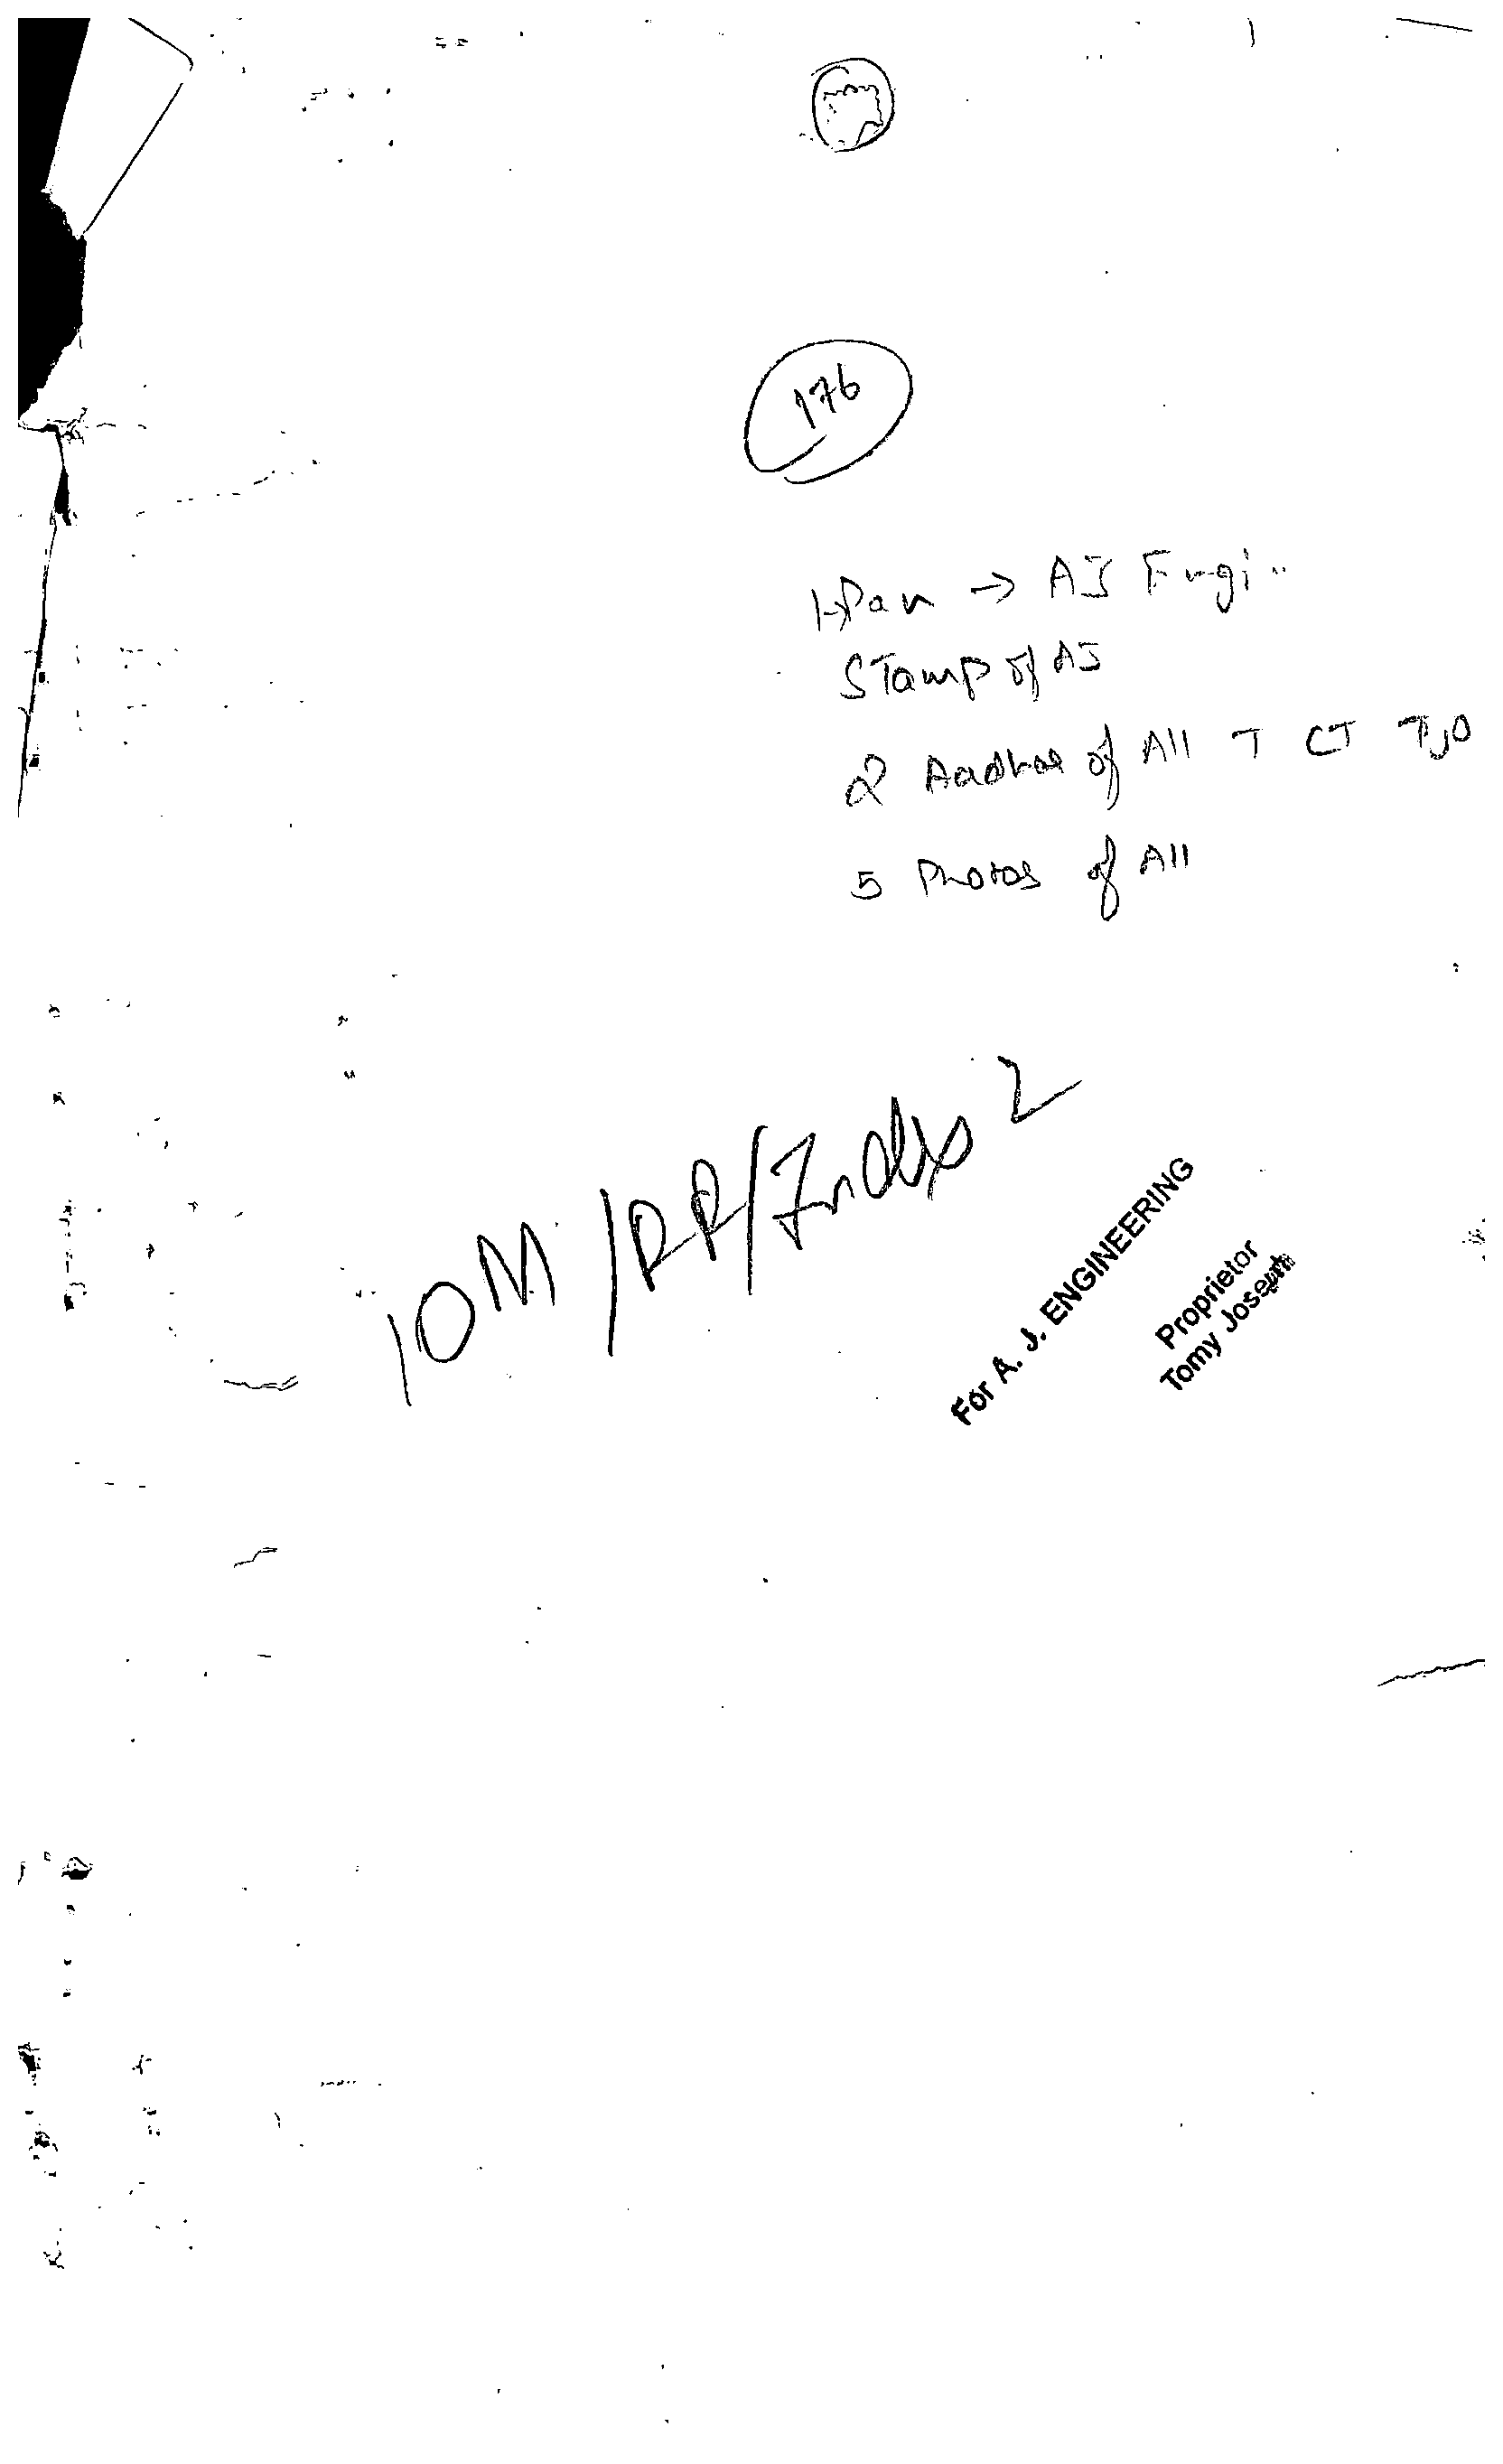 176
Pan → AJ Engi..
Stamp of AJ
2 Aadhar of All T CT TJO
5 Photos of All
IOM/RR/Index 2
For A. J. ENGINEERING
Proprietor
Tomy Joseph